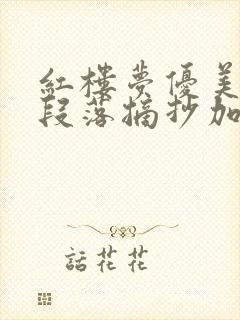 紅樓夢優美
段落摘抄加
話花花